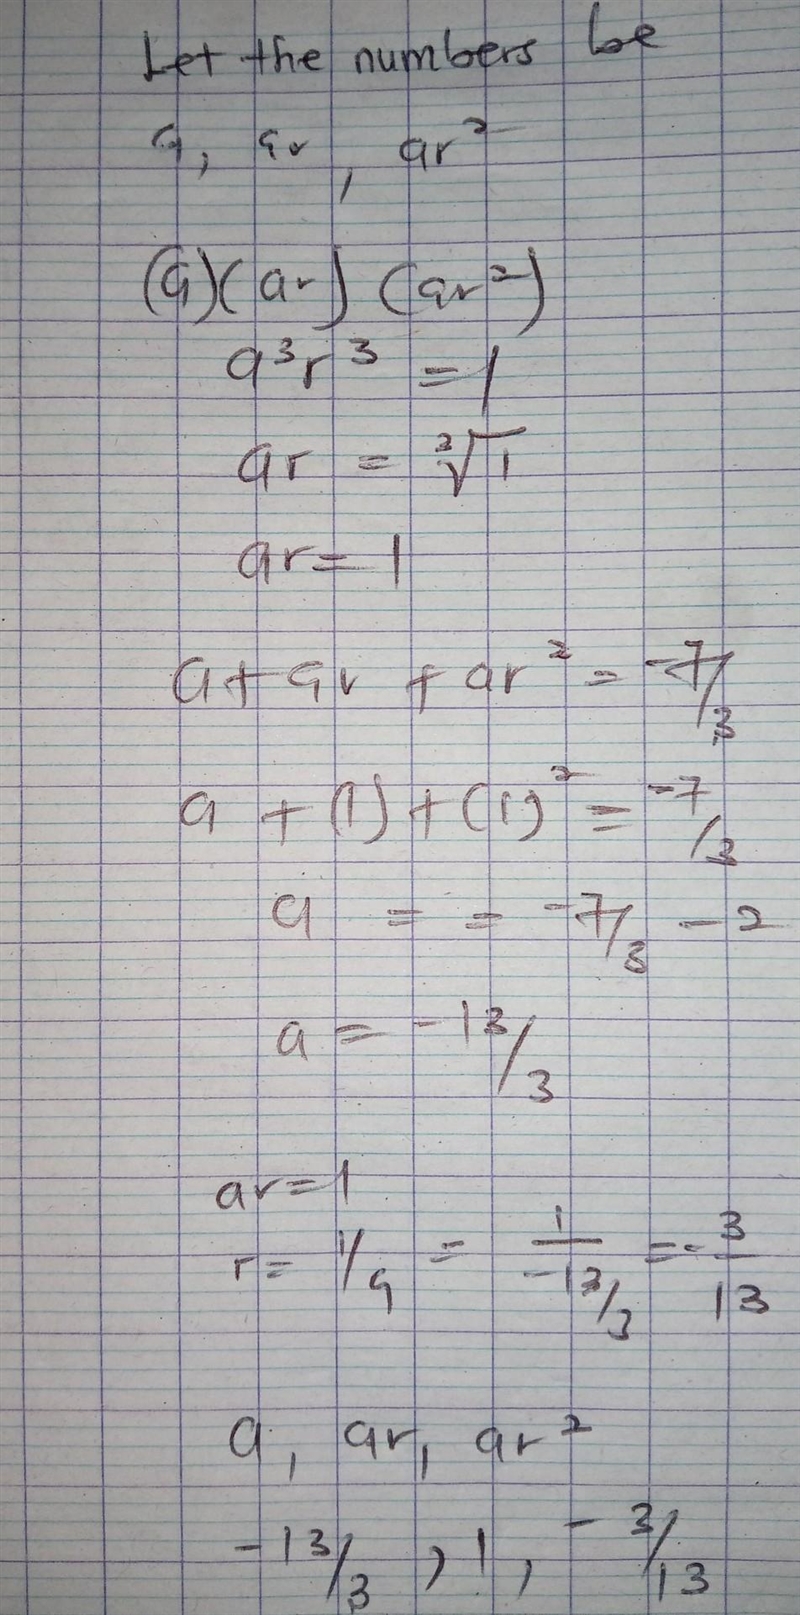 Let the numbers be
a, ar, ar²
(a)(ar)(ar²)
a³r³ = 1
ar = ³√1
ar = 1
a + ar + ar² = -7/3
a + (1) + (1)² = -7/3
a = = -7/3 - 2
a = -13/3
ar = 1
r = 1/a = 1/(-13/3) = -3/13
a, ar, ar²
-13/3, 1, -3/13